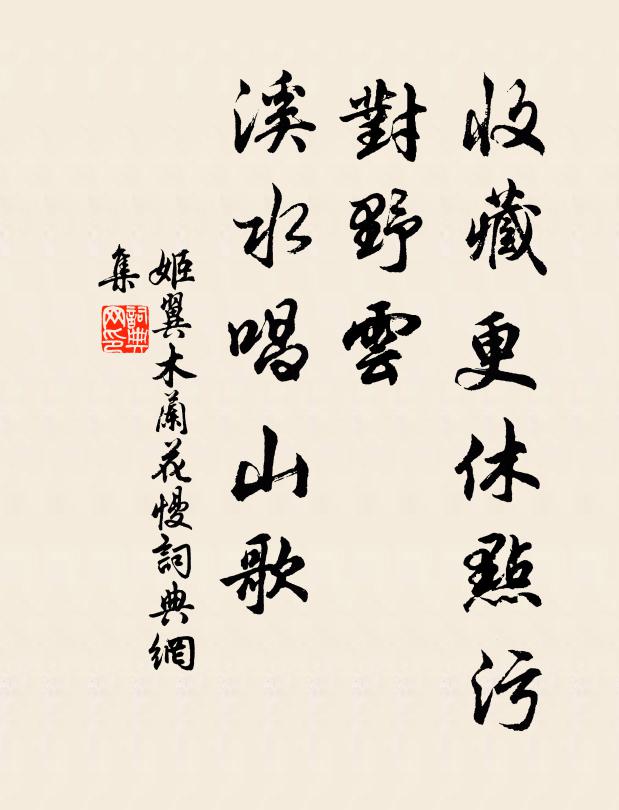 收藏更休點污
對野雲
溪水唱山歌
姬翼木蘭花慢詞典網
集
詞典
网印